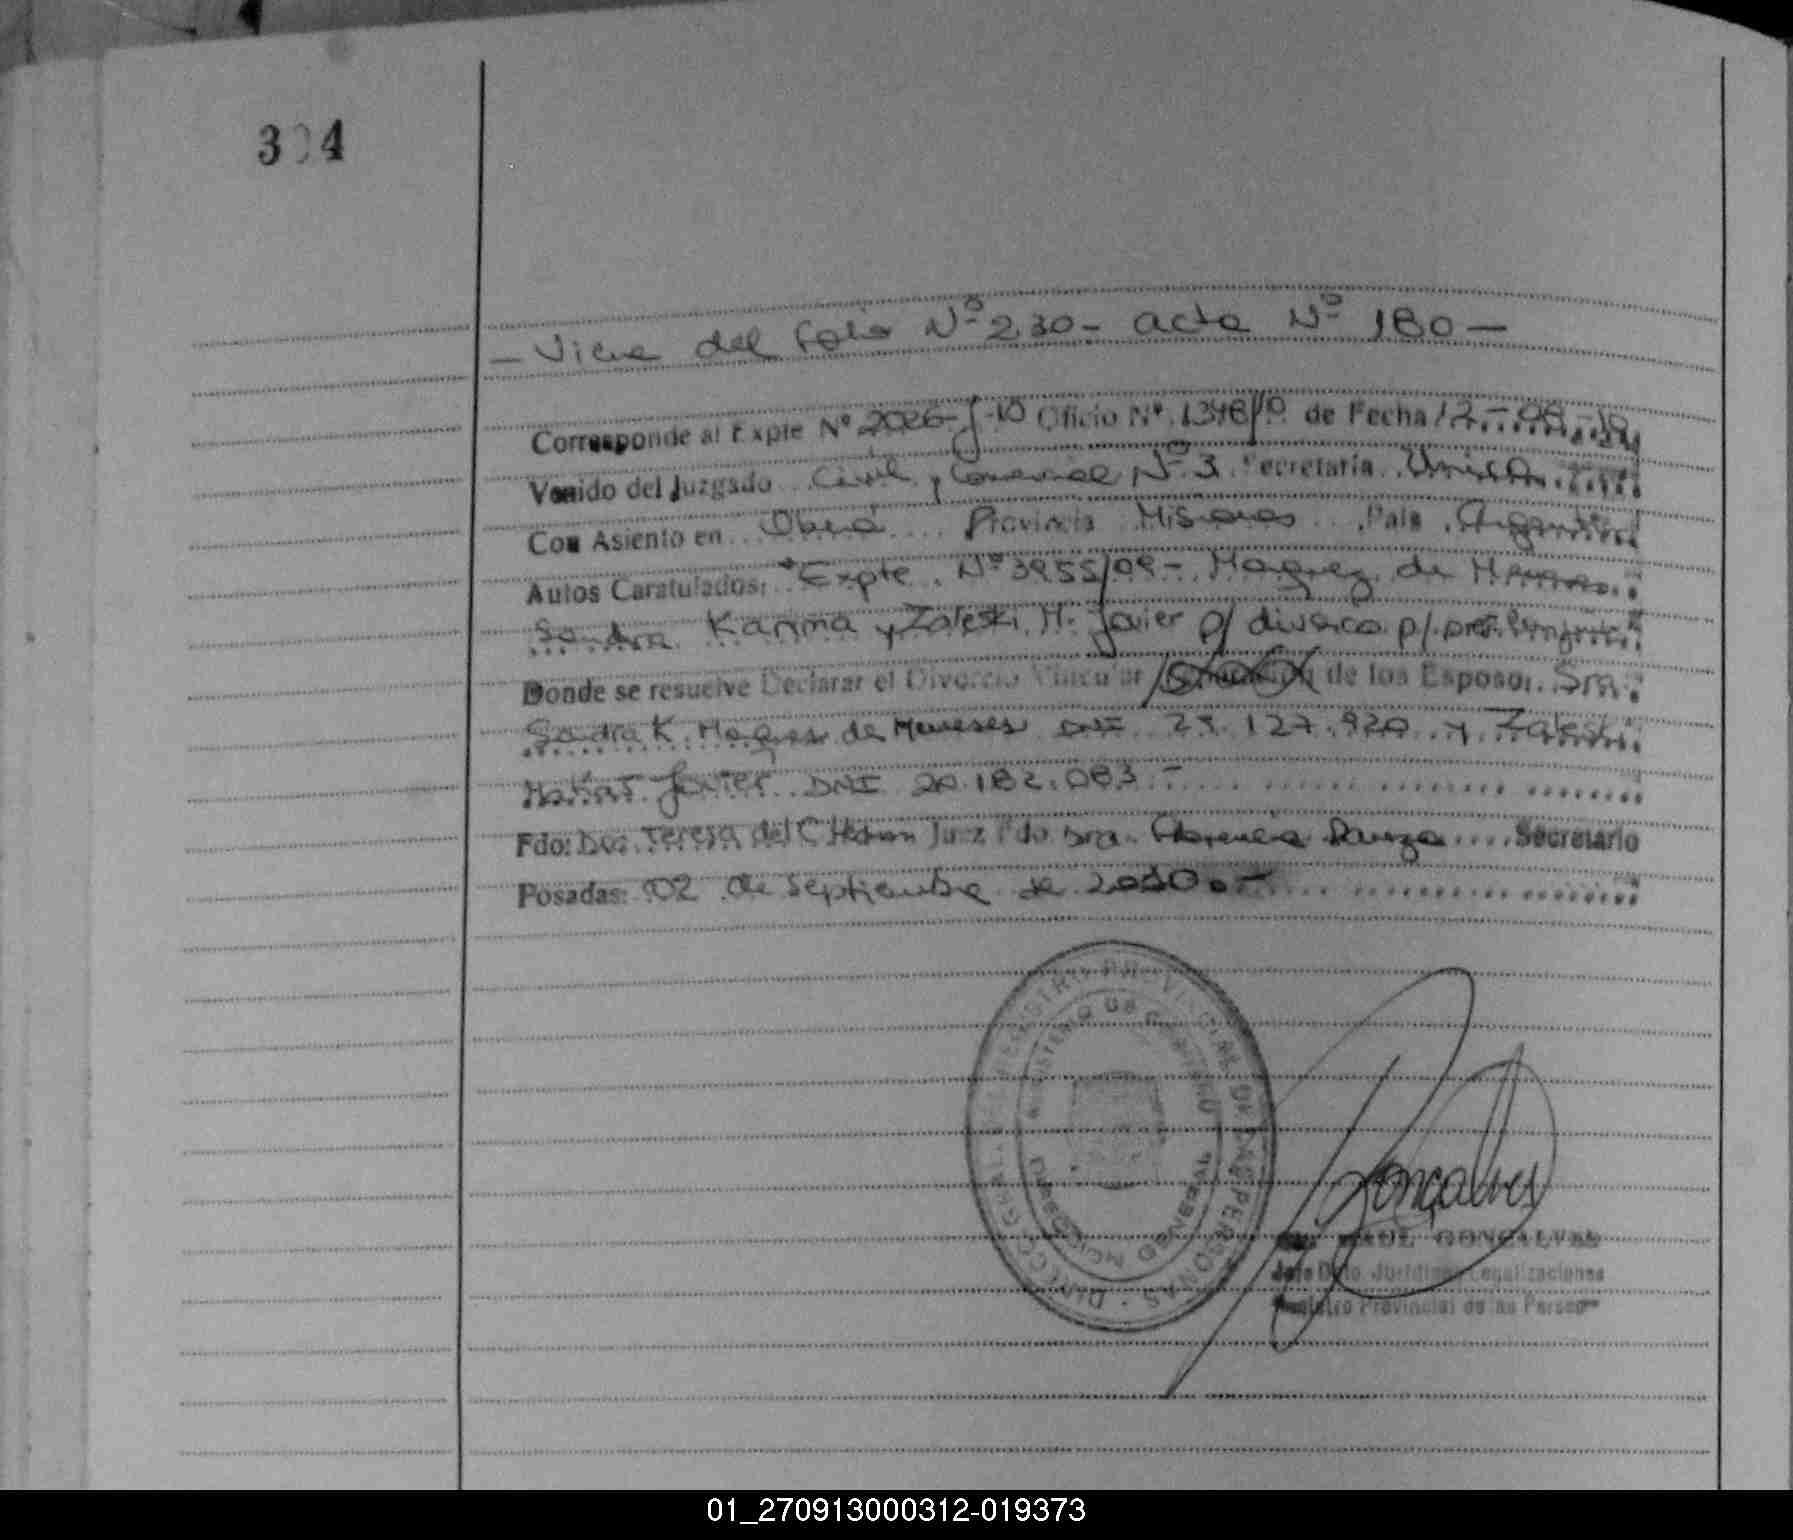 304
- Viene del folio Nº 230 - acta Nº 180 -
Corresponde al Expte Nº 2026-J-10 Oficio Nº 1348/10 de Fecha 12-08-10
Venido del Juzgado Civil y Comercial Nº 3 Secretaria Unica
Con Asiento en Oberá Provincia Misiones Pais Argentina
Autos Caratulados: "Expte Nº 3955/09 - Maquez de
Sandra Karina y Zaleski M. Javier p/ divorcio p/
Donde se resuelve Declarar el Divorcio Vincular de los Esposo: Sra.
Sandra K. de Meneses DNI 23.127.920 y Zaleski
Matias Javier DNI 20.182.083.-
Fdo: Dra. Teresa del C. Juez Fdo Dra. Florencia Secretario
Posadas: 02 de septiembre de 2010.-
DIRECCION GENERAL DEL REGISTRO PROVINCIAL DE LAS PERSONAS
MINISTERIO DE GOBIERNO
Gonçalves
RAUL GONCALVES
Jefe Dpto Juridico Legalizaciones
Registro Provincial de las Personas
01_270913000312-019373